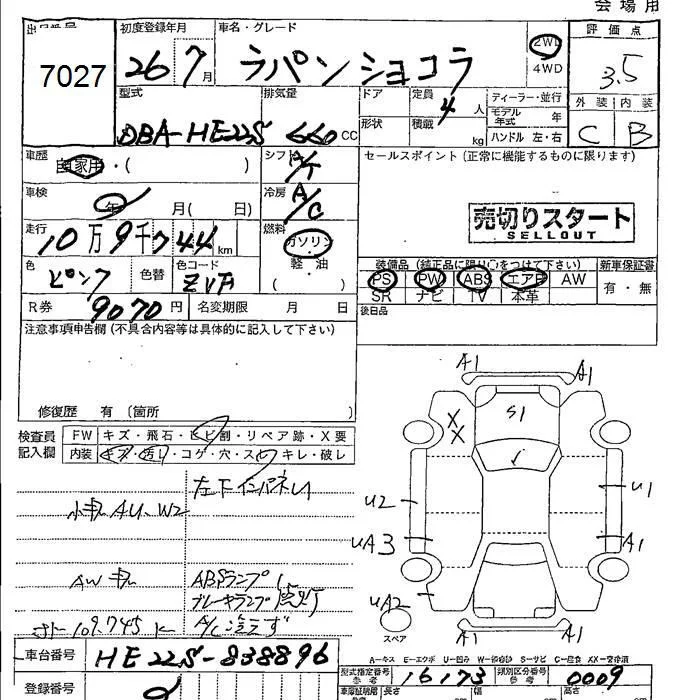 会場用
出品番号 初度登録年月 車名・グレード 評価点
7027 26 7月 ラパンショコラ 2WD 4WD 3.5
外装 内装
C B
型式 排気量 ドア 定員 ディーラー・並行
DBA-HE22S 660cc 4人 モデル年式 年
形状 積載 kg ハンドル 左・右
車歴 シフト セールスポイント(正常に機能するものに限ります)
自家用・( ) AT
車検 年 月( 日) 冷房 A/C
売切りスタート
SELLOUT
走行 10万9千744km 燃料 ガソリン 軽油
色 ピンク 色替 色コード ZVA
装備品(純正品に限り○をつけて下さい) 新車保証書
PS PW ABS エアB AW 有・無
SR ナビ TV 本革
R券 9070円 名変期限 月 日 後日品
注意事項申告欄(不具合内容等は具体的に記入して下さい)
修復歴 有(箇所 )
検査員記入欄 FW キズ・飛石・ヒビ割・リペア跡・X要
内装 キズ・汚レ・コゲ・穴・スレ・キレ・破レ
A1 A1
S1
X X
U2 U1
UA3 A1
UA2
A1 A1
スペア
左下インパネ
小キズ AU、W2
ABSランプ
ブレーキランプ点灯
A/C冷えず
109.745 k
A-キズ E-エクボ U-凹み
車台番号 HE22S-838896
型式指定番号 16173 類別区分番号 0009
参考 参考
登録番号 長さ cm 幅 cm 高さ